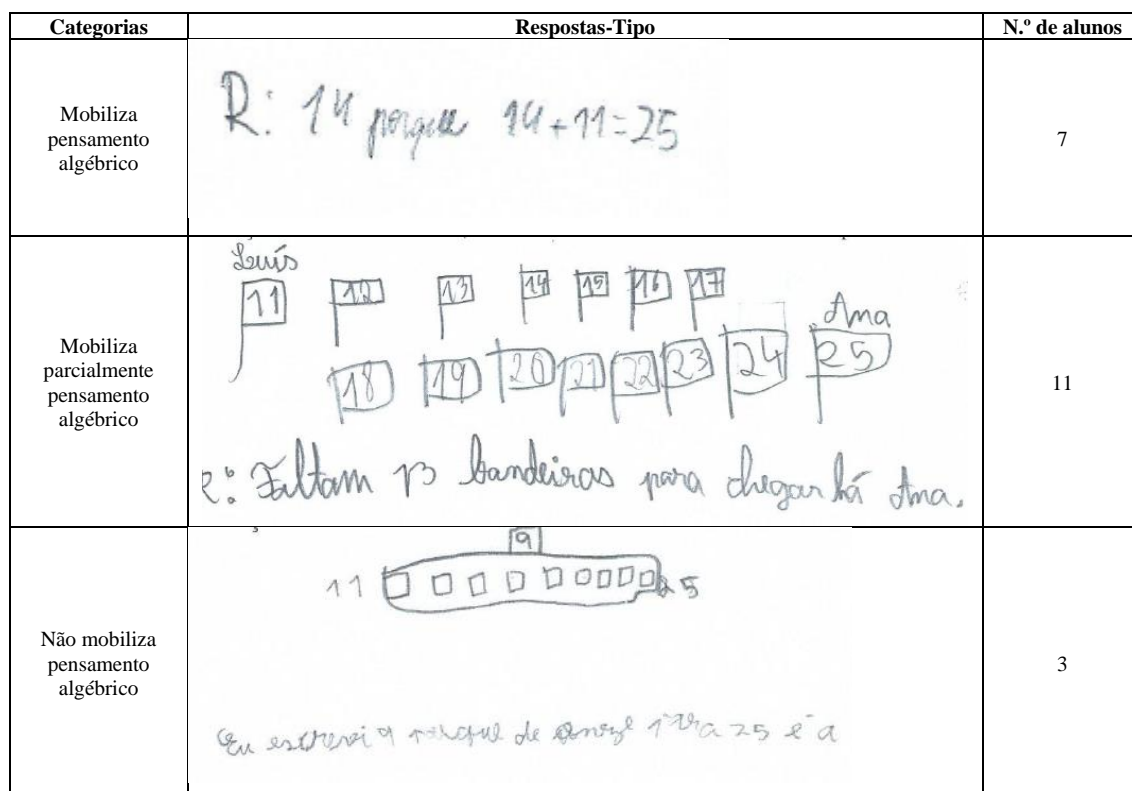 Categorias Respostas-Tipo N.º de alunos
Mobiliza
pensamento
algébrico
R: 14 porque 14+11=25
7
Mobiliza
parcialmente
pensamento
algébrico
Luís
11 12 13 14 15 16 17
Ana
18 19 20 21 22 23 24 25
R: Faltam 13 bandeiras para chegar há Ana.
11
Não mobiliza
pensamento
algébrico
9
11 25
Eu escrevi 9 porque de onze 25 é a
3